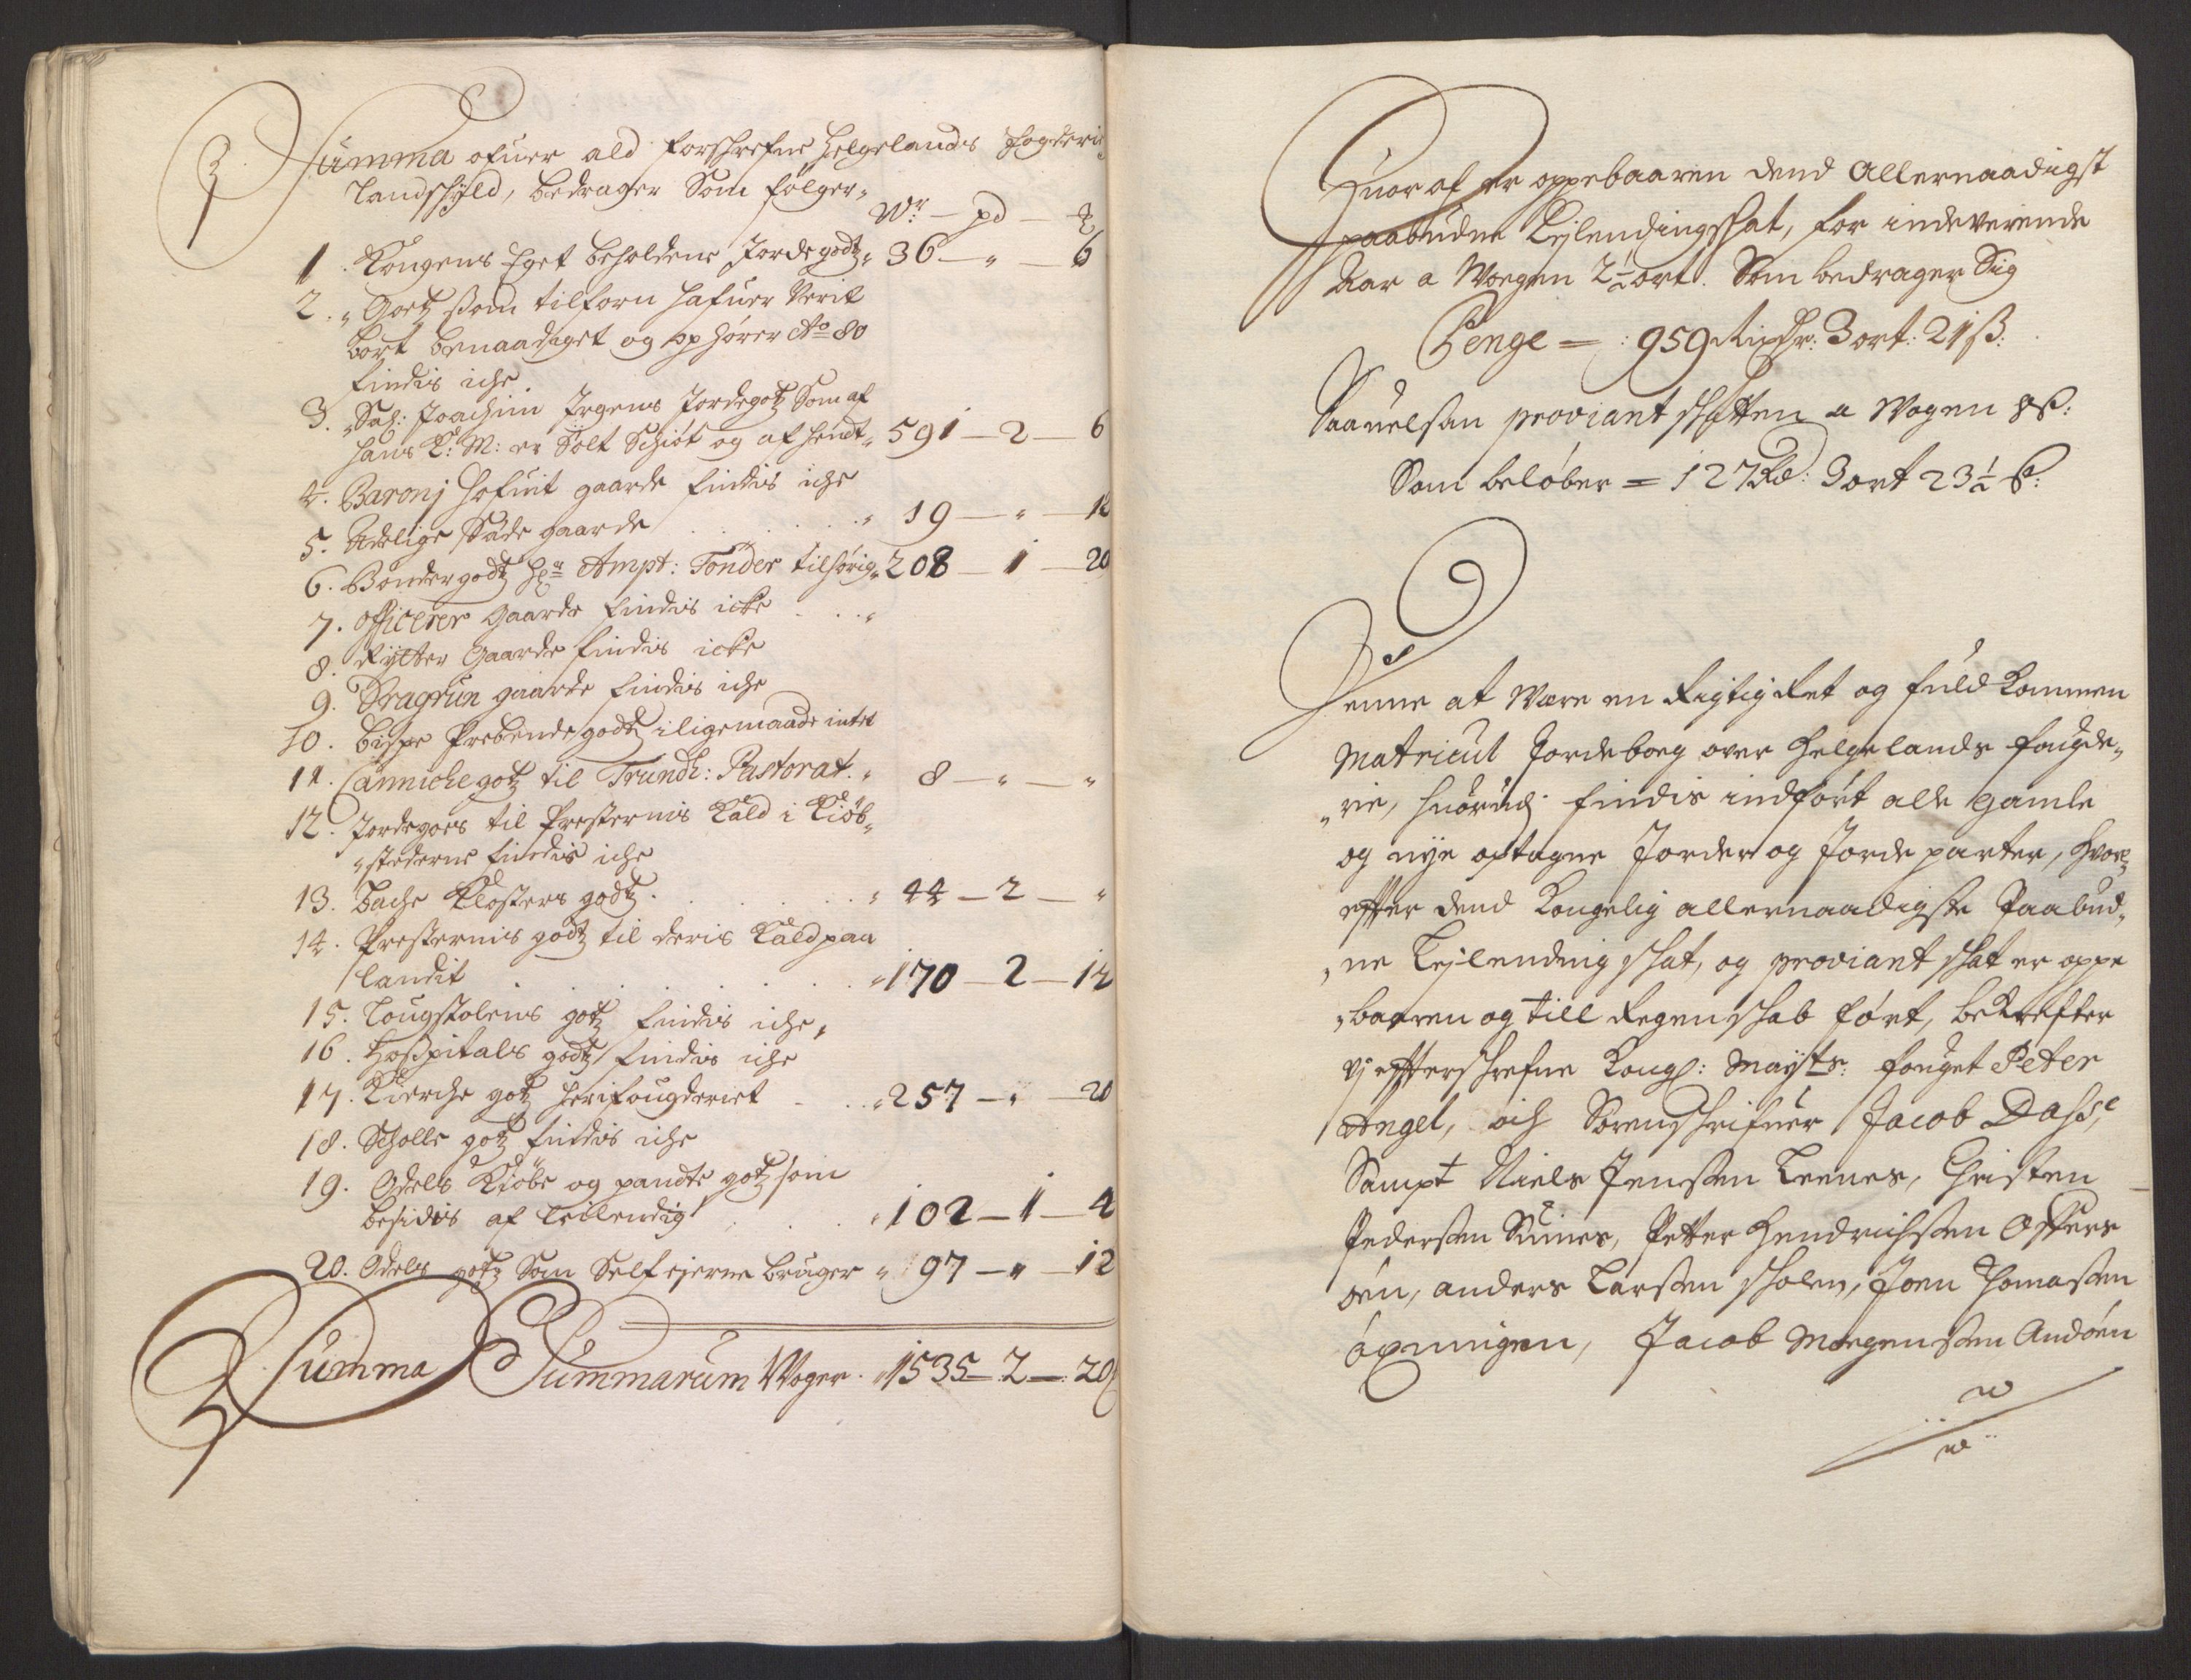 Summa ofuer ald forschrefne Helgelands fogderie
Landschyld, bedrager Som følger,
Wr — pd — ℔
1. Kongens Eget beholdene Jordegodtz 36 — " — 6
2. Goetz som tilforn hafuer Verit
bort benaadiget og ophører Ao 80
findis iche
3. Sal: Joachim Irgens Jordegotz Som af
hans K: M: er Solt Schiøt og afhendt 591 — 2 — 6
4. Baronj Hofuit gaarde findis iche
5. Adelige Säde gaarde " 19 — " — 12
6. Bøndergodtz Hr Ampt: Tønder tilhørig 208 — 1 — 20
7. Officerer Gaarde findis icke
8. Rytter Gaarde findis icke
9. Dragoun gaarde findis iche
10. Bispe Prebende godtz iligemaade intet
11. Cannicke gotz til Trundh: Pastorat. " 8 — " — "
12. Jordegoes til Presternis Kald i Kiøb-
stederne findis iche
13. Bache Klosters godtz " 44 — 2 — "
14. Presternis godtz til deris Kald paa
landit " 170 — 2 — 12
15. Lougstolens gotz findis iche,
16. Hospitals godtz findis iche
17. Kierche gotz her i fougderiet " 257 — " — 20
18. Scholle gotz findis iche
19. Odels Kiøbe og pandte gotz som
besidis af Leilendig " 102 — 1 — 4
20. Odels gotz Som Selfejerne bruger " 97 — " — 12
Summa Summarum Woger " 1535 — 2 — 20
Huoraf er oppebaaren dend Allernaadigst
paabudne Lejlendingschat, for indeverende
Aar a Woegen 2 1/2 ort. Som bedrager Sig
Penge = : 959 Rixdr: 3 ort: 21 ß:
Saauelsom proviant schatten a Wogen 8 ß:
Som beløber = 127 Rd: 3 ort 23 1/2 ß:
Denne at Were en Rigtig Ret og fuldkommen
Matricul Jordeboeg over Helgelands fougde-
rie, huorudj findis indført alle gamle
og nye optagne Jorder og Jorde parter, Hvor-
effter dend Kongelig allernaadigste Paabud-
ne Lejlending schat, og proviant schat er oppe
baaren og till Regenschab ført, bekrefter
vj effterschrefne Kongl: Mayts: fouget Peter
Angel, och Sorenschrifuer Jacob Dass,
Sampt Niels Jensen Leenes, Christen
Pedersen Siines, Petter Hendrichsen Offers
øen, anders Larsen Skolen, Joen Thomasen
Jacob Mogensen Andøen